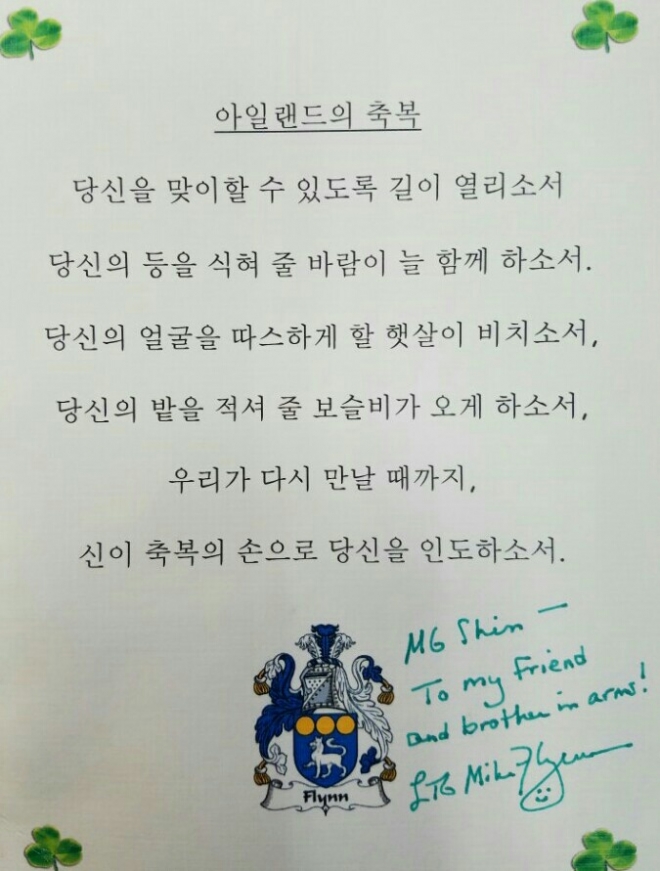 아일랜드의 축복
당신을 맞이할 수 있도록 길이 열리소서
당신의 등을 식혀 줄 바람이 늘 함께 하소서.
당신의 얼굴을 따스하게 할 햇살이 비치소서,
당신의 밭을 적셔 줄 보슬비가 오게 하소서,
우리가 다시 만날 때까지,
신이 축복의 손으로 당신을 인도하소서.
MG Shin —
To my friend
and brother in arms!
LTG Mike Flynn
Flynn